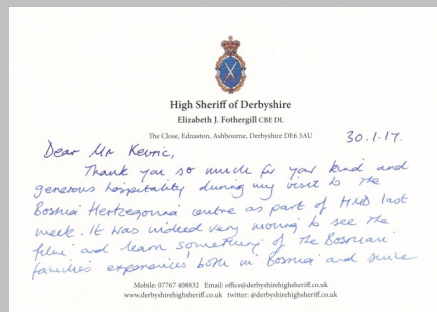 High Sheriff of Derbyshire
Elizabeth J. Fothergill CBE DL
The Close, Ednaston, Ashbourne, Derbyshire DE6 3AU
30.1.17.
Dear Mr Kevric,
Thank you so much for your kind and
generous hospitality during my visit to the
Bosnia Hertzegovina centre as part of HMD last
week. It was indeed very moving to see the
film and learn something of the Bosnian
families experiences both in Bosnia and since
Mobile: 07767 408832 Email: office@derbyshirehighsheriff.co.uk
www.derbyshirehighsheriff.co.uk twitter: @derbyshirehighsheriff.co.uk